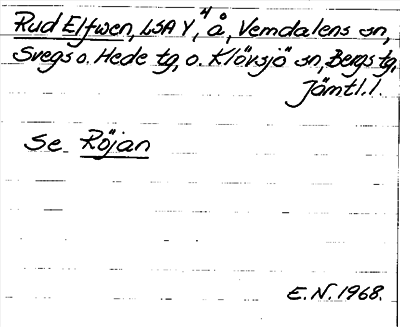 Rud Elfwen, LSA Y, 4 å, Vemdalens sn,
Svegs o. Hede tg, o. Klövsjö sn, Bergs tg,
Jämtl. l.
Se Röjan
E. N. 1968.